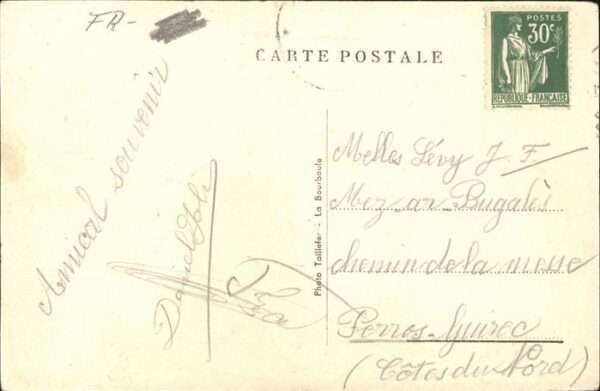 FR-
CARTE POSTALE
POSTES
30c
RÉPUBLIQUE-FRANÇAISE
Amical souvenir
Photo Taillefer - La Bourboule
Melles Lévy J. F.
Mez ar Bugalès
chemin de la messe
Perros-Guirec
(Côtes du Nord)